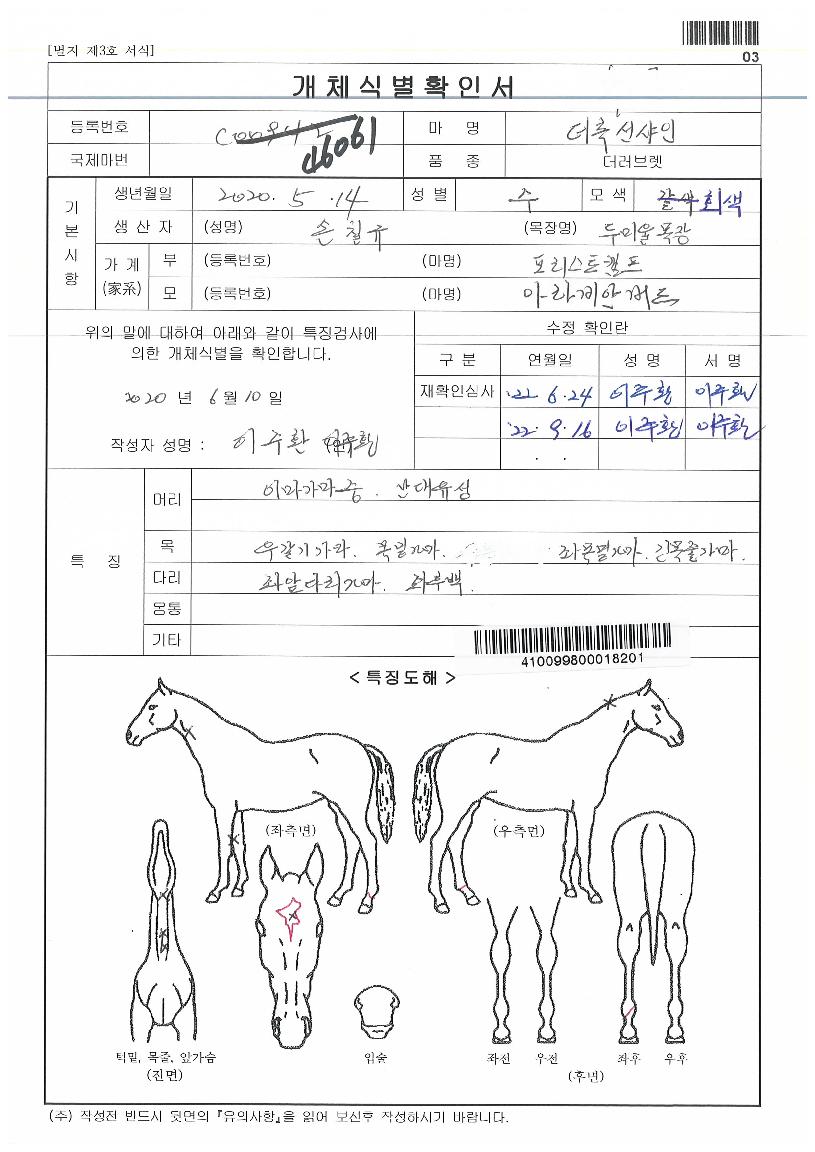 [별지 제3호 서식]
03
개체식별확인서
등록번호 046061 마 명 더록선샤인
국제마번 품 종 더러브렛
기본사항
생년월일 2020. 5 .14 성 별 수 모 색 갈색 회색
생 산 자 (성명) 손칠규 (목장명) 두미울목장
가 계 (家系) 부 (등록번호) (마명) 포리스트캠프
모 (등록번호) (마명)
위의 말에 대하여 아래와 같이 특징검사에
의한 개체식별을 확인합니다.
2020 년 6 월 10 일
작성자 성명 : 이주환 이주환
수정 확인란
구 분 연월일 성 명 서 명
재확인심사 '22 6 .24 이주환 이주환
'22. 9 .16 이주환 이주환
. .
특 징
머리 이마가마중. 반대유성
목 우갈기가마. 목밑가마. 좌목밑가마. 긴목줄가마.
다리 좌앞다리가마. 좌후백.
몽통
기타
410099800018201
< 특징도해 >
(좌측면) (우측면)
턱밑, 목줄, 앞가슴
(전면)
입술
좌전 우전 좌후 우후
(후면)
(주) 작성전 반드시 뒷면의 『유의사항』을 읽어 보신후 작성하시기 바랍니다.